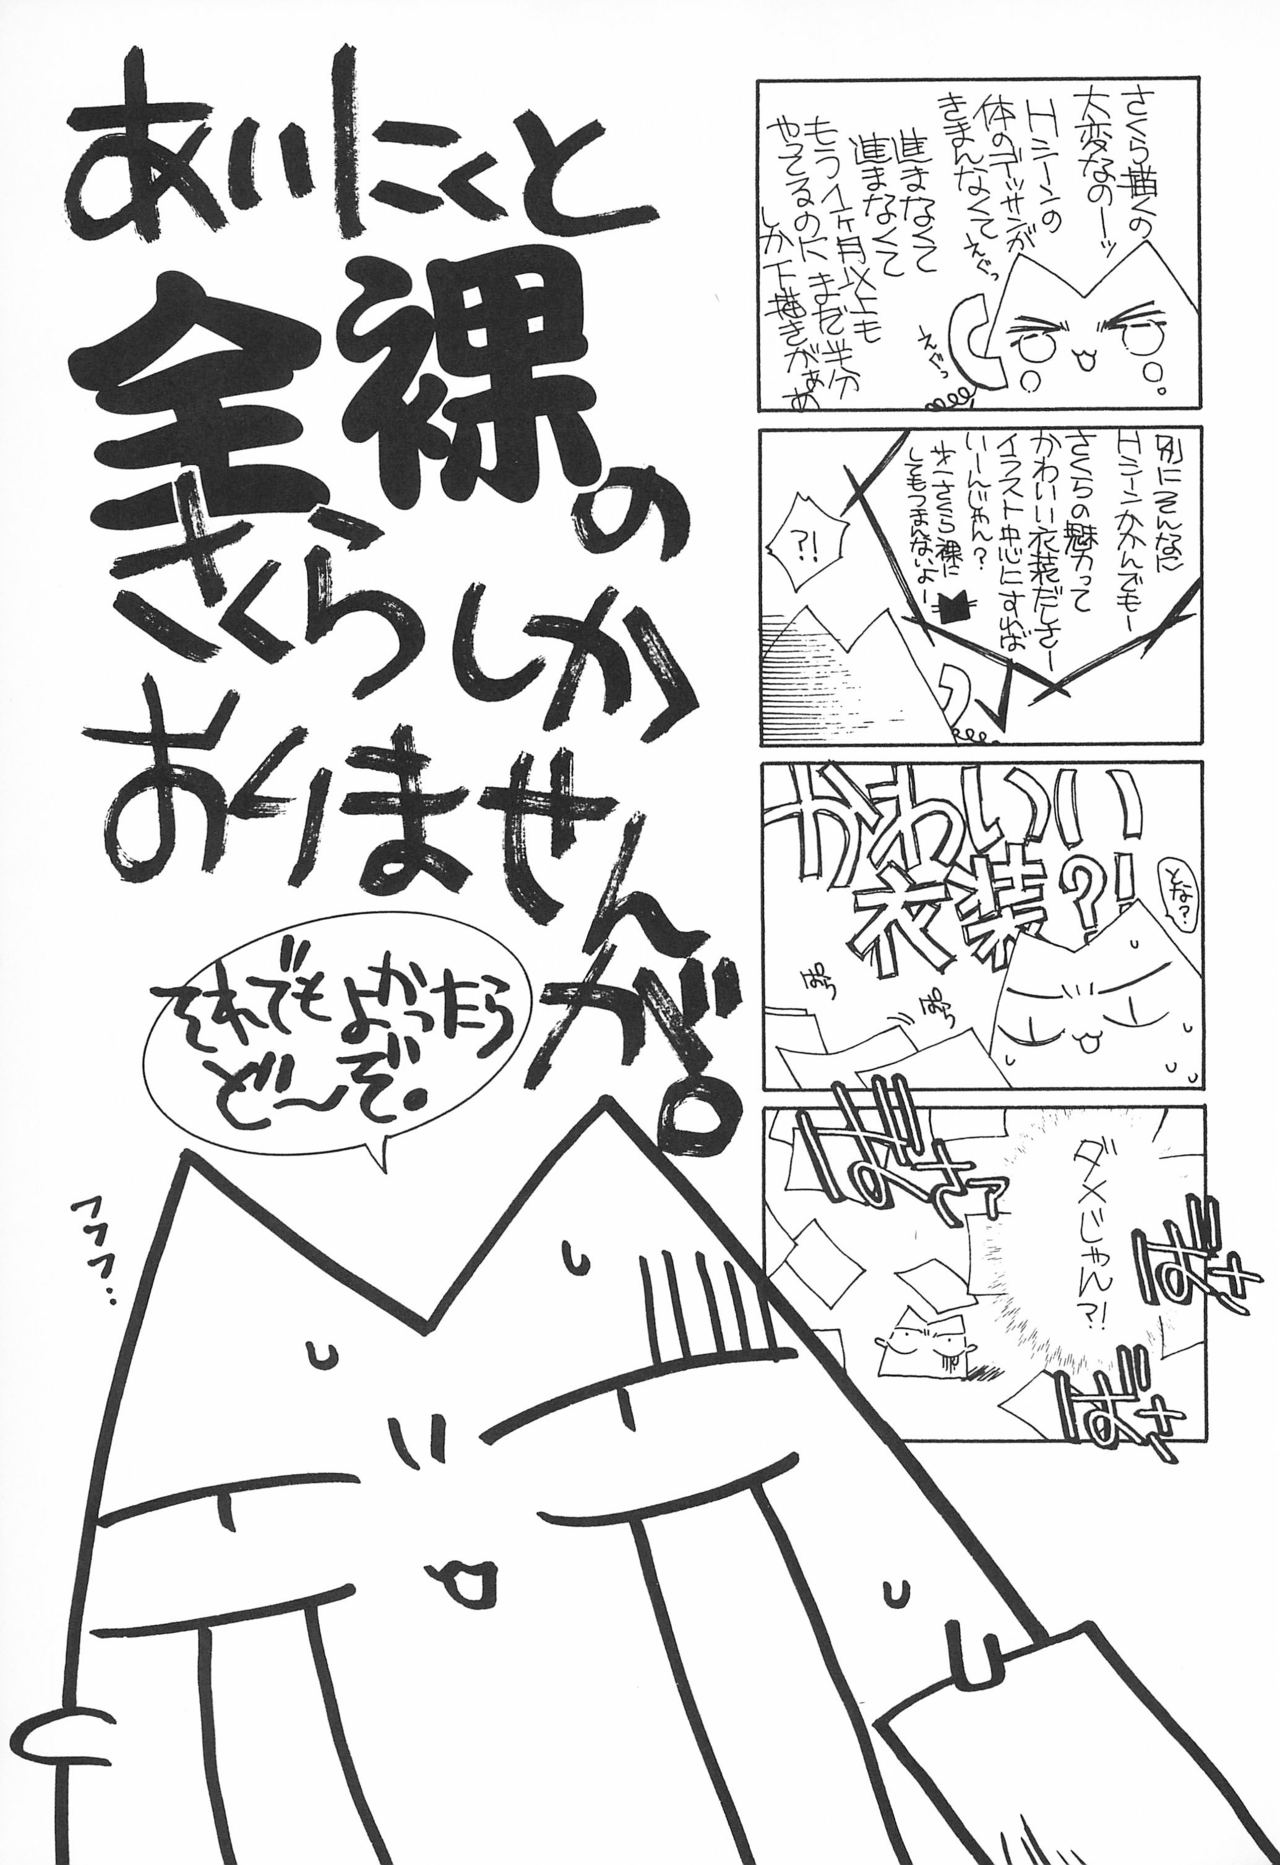 さくら描くの
大変なのーッ
Hシーンの
体のデッサンが
きまんなくて
えぐっ
進まなくて
進まなくて
もう1ヶ月以上も
やってるのにまだ半分
しか下描きがぁぁ
えぐっ
別にそんなに
Hシーンかかんでもー
さくらの魅力って
かわいい衣装だしさー
イラスト中心にすれば
いーんじゃん?
オーさくら裸に
してもつまんないよー
?!
かわいい
衣装?!
とな?
ぱらっ
ぱらっ
ダメじゃん?!
ばさァ
ばさ
ばさ
あいにくと
全裸の
さくらしか
おりませんが。
それでもよかったら
ど〜ぞ。
フフフ…